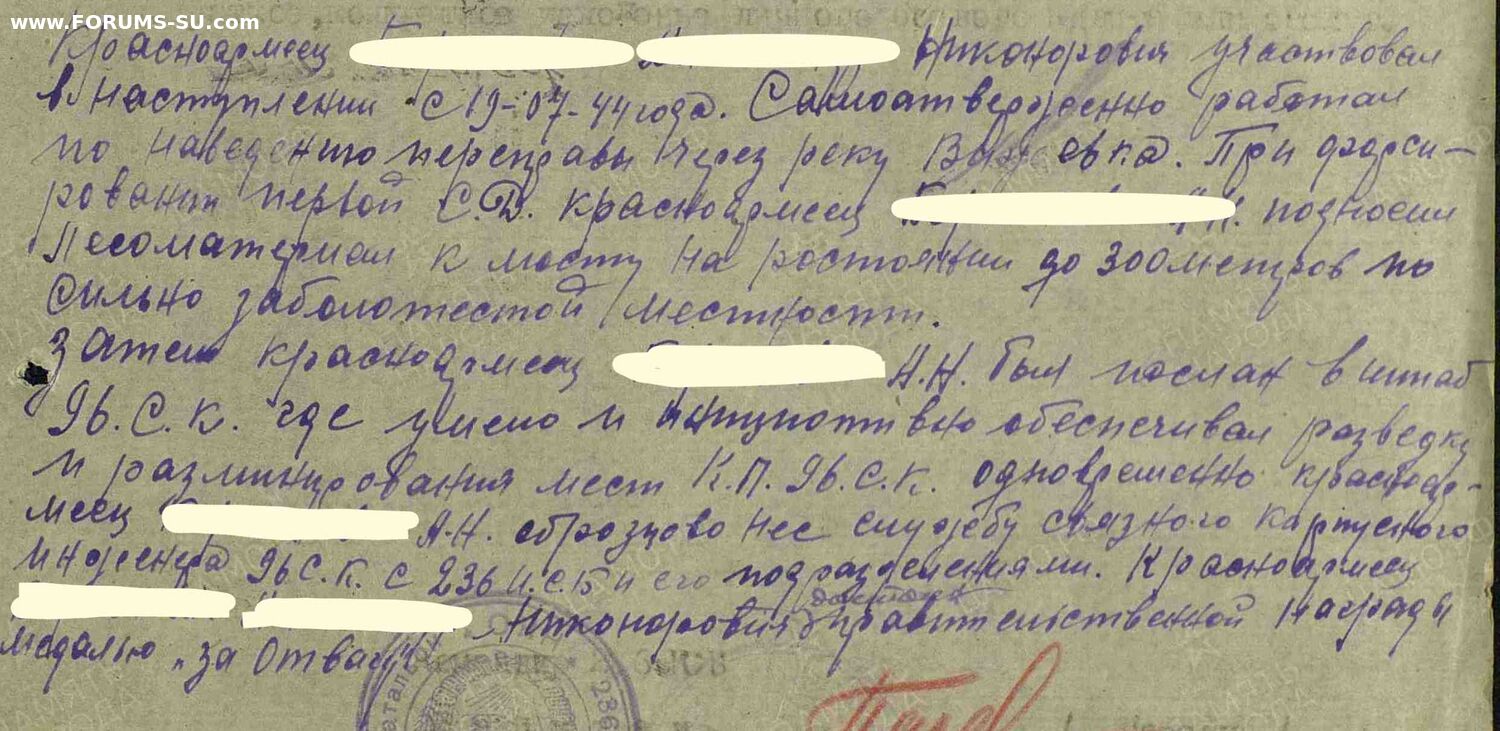 www.FORUMS-SU.com
Красноармеец Никонорович участвовал
в наступлении с 19-07-44 года. Самоотверженно работал
по наведению переправы через реку При форси-
ровании первой С.Д. красноармеец Н. подносил
Лесоматериал к мосту на ростоянии до 300 метров по
сильно заболотестой местности.
Затем красноармеец А.Н. был послан в штаб
96. С. К. где умело и обеспечивал разведку
и разминирования мест К.П. 96. С. К. одновременно красноар-
меец А.Н. образцово нес службу связного карпусного
инженера 96 С. К. с 236 и его подразделениями. Красноармеец
Никонорович достоин правительственной награды
медалью „за Отвагу"
236